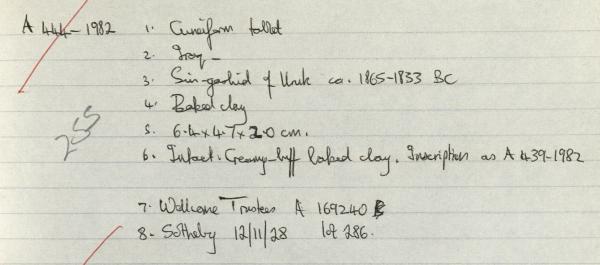 A 444-1982 1. Cuneiform tablet
2. Iraq -
3. Sin-gashid of Uruk ca. 1865-1833 BC
4. Baked clay
255
5. 6.4 x 4.7 x 2.0 cm.
6. Intact. Creamy-buff baked clay. Inscription as A 439-1982
7. Wellcome Trustees A 169240
8. Sotheby 12/11/28 lot 286.